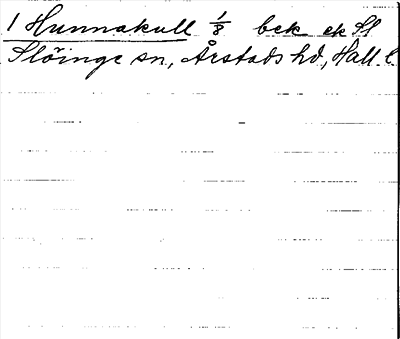 1 Hunnakull 1/8 bek ek Sl
Slöinge sn, Årstads hd, Hall. l.